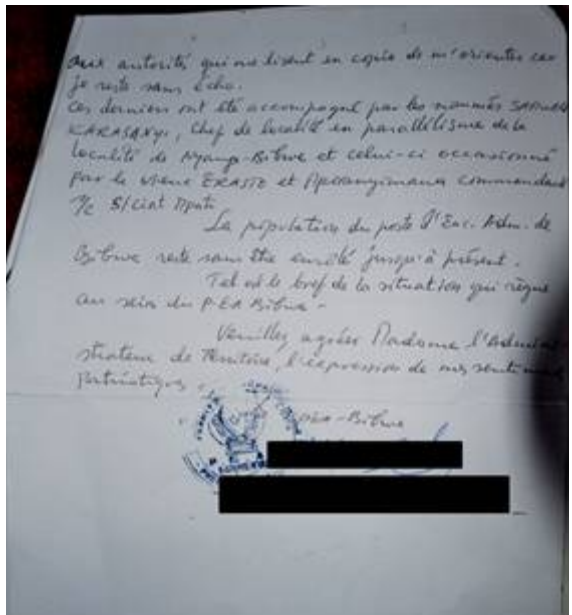 Aux autorités qui me lisent en copie de m'orienter car
je reste sans écho.
Ces derniers ont été accompagné par les nommés
KARASANYI, Chef de localité en parallélisme de la
localité de Nyange-Bibwe et celui-ci occasionné
par le vieux ERASTO et commandant
S/Ciat
La population du poste d'Enc. Adm. de
Bibwe reste sans être enrôlé jusqu'à présent.
Tel est le bref de la situation qui règne
au sein du P.E.A Bibwe -
Veuillez agréer Madame l'Admini-
strateur de Territoire, l'expression de mes sentiments
patriotiques.
-Bibwe